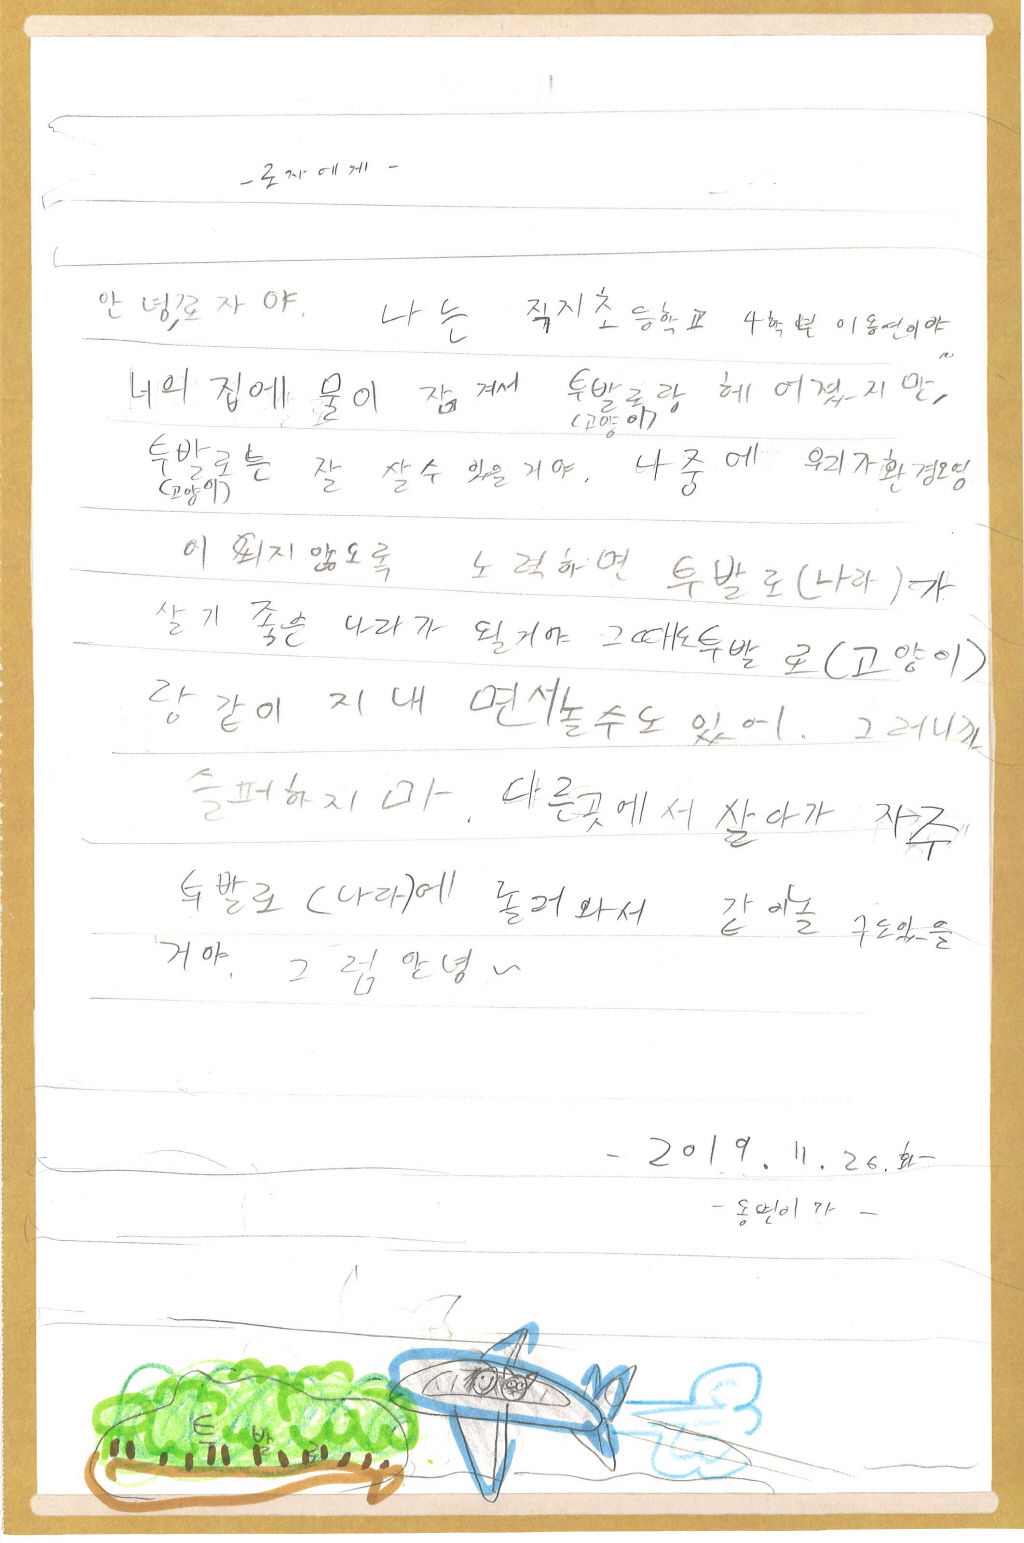 - 로자에게 -
안녕, 로자야. 나는 직지초등학교 4학년 이동연이야~
너의 집에 물이 잠겨서 투발로랑 헤어졌지만,
(고양이)
투발로는 잘 살수 있을거야. 나중에 우리가 환경오염
(고양이)
이 되지않도록 노력하면 투발로(나라)가
살기 좋은 나라가 될거야 그때도 투발로(고양이)
랑 같이 지내면서 놀수도 있어. 그러니까
슬퍼하지마. 다른곳에서 살아가 자주
투발로(나라)에 놀러와서 같이놀 수도있을
거야. 그럼 안녕~
- 2019. 11. 26. 화 -
- 동연이가 -
투발로